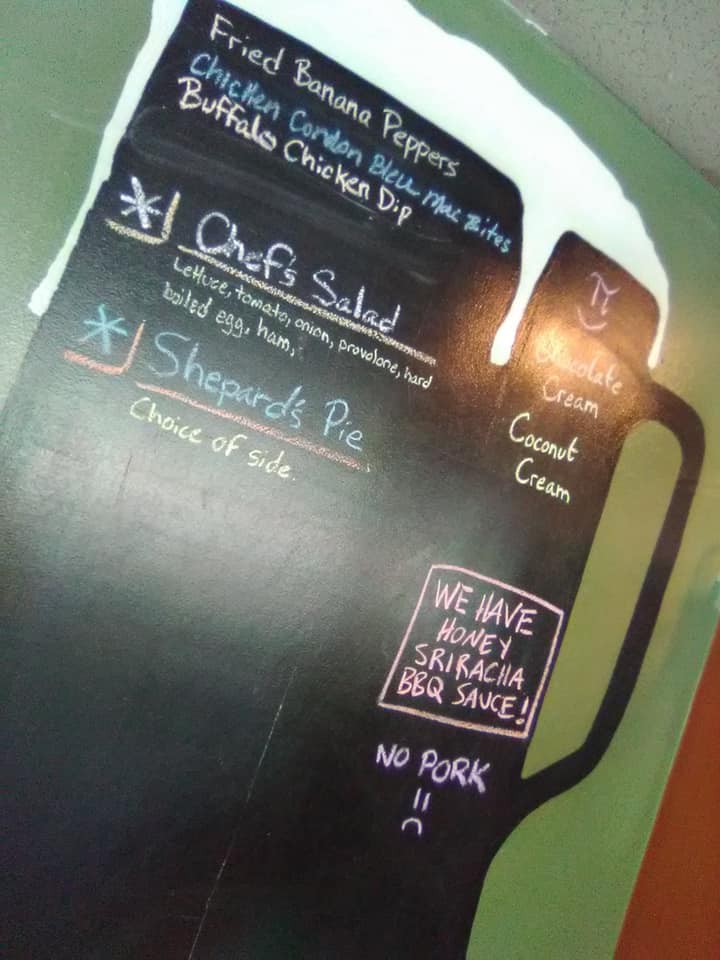 Fried Banana Peppers
Chicken Cordon Bleu Mac Bites
Buffalo Chicken Dip
* Chef's Salad
Lettuce, tomato, onion, provolone, hard
boiled egg, ham,
* Shepard's Pie
Choice of side.
π
Chocolate
Cream
Coconut
Cream
WE HAVE
HONEY
SRIRACHA
BBQ SAUCE!
NO PORK